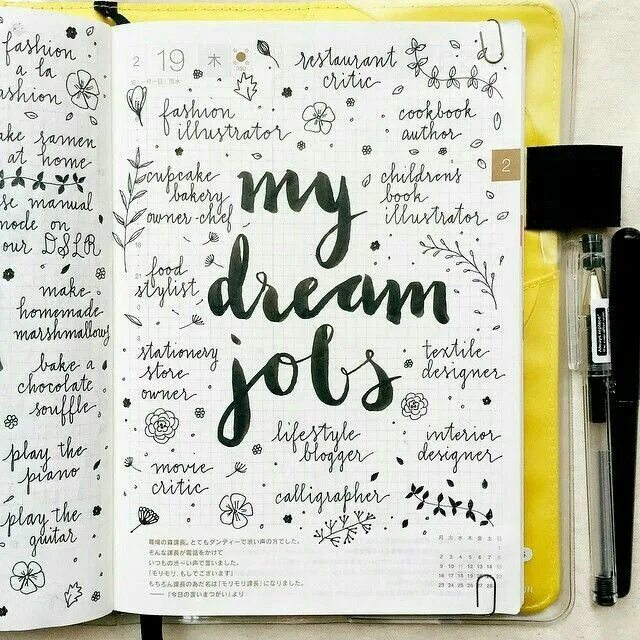 fashion
a la
ashion
ake ramen
at home
se manual
mode on
our DSLR
make
homemade
marshmallows
bake a
chocolate
souffle
play the
piano
play the
guitar
2 19 木
restaurant
critic
fashion
illustrator
cookbook
author
cupcake
bakery
owner-chef
children's
book
illustrator
my
dream
jobs
food
stylist
stationery
store
owner
textile
designer
lifestyle
blogger
interior
designer
movie
critic
calligrapher
2
職場の森課長。とてもダンディーで渋い声の方でした。
そんな課長が電話をかけて
いつもの渋〜い声で言いました。
「モリモリ、もしでございます」
もちろん課長のあだ名は「モリモリ課長」になりました。
——「今日の言いまつがい」より
月 火 水 木 金 土 日